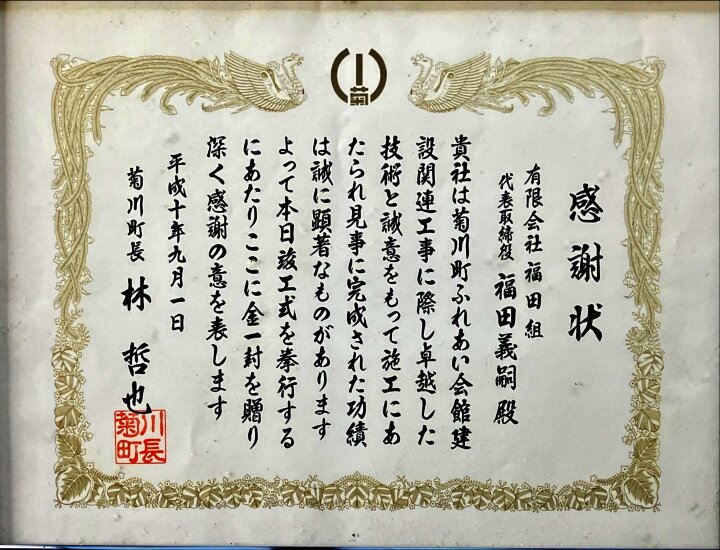 菊
感謝状
有限会社 福田組
代表取締役 福田義嗣 殿
貴社は菊川町ふれあい会館建
設関連工事に際し卓越した
技術と誠意をもって施工にあ
たられ見事に完成された功績
は誠に顕著なものがあります
よって本日竣工式を挙行する
にあたりここに金一封を贈り
深く感謝の意を表します
平成十年九月一日
菊川町長 林 哲也
川長
菊町